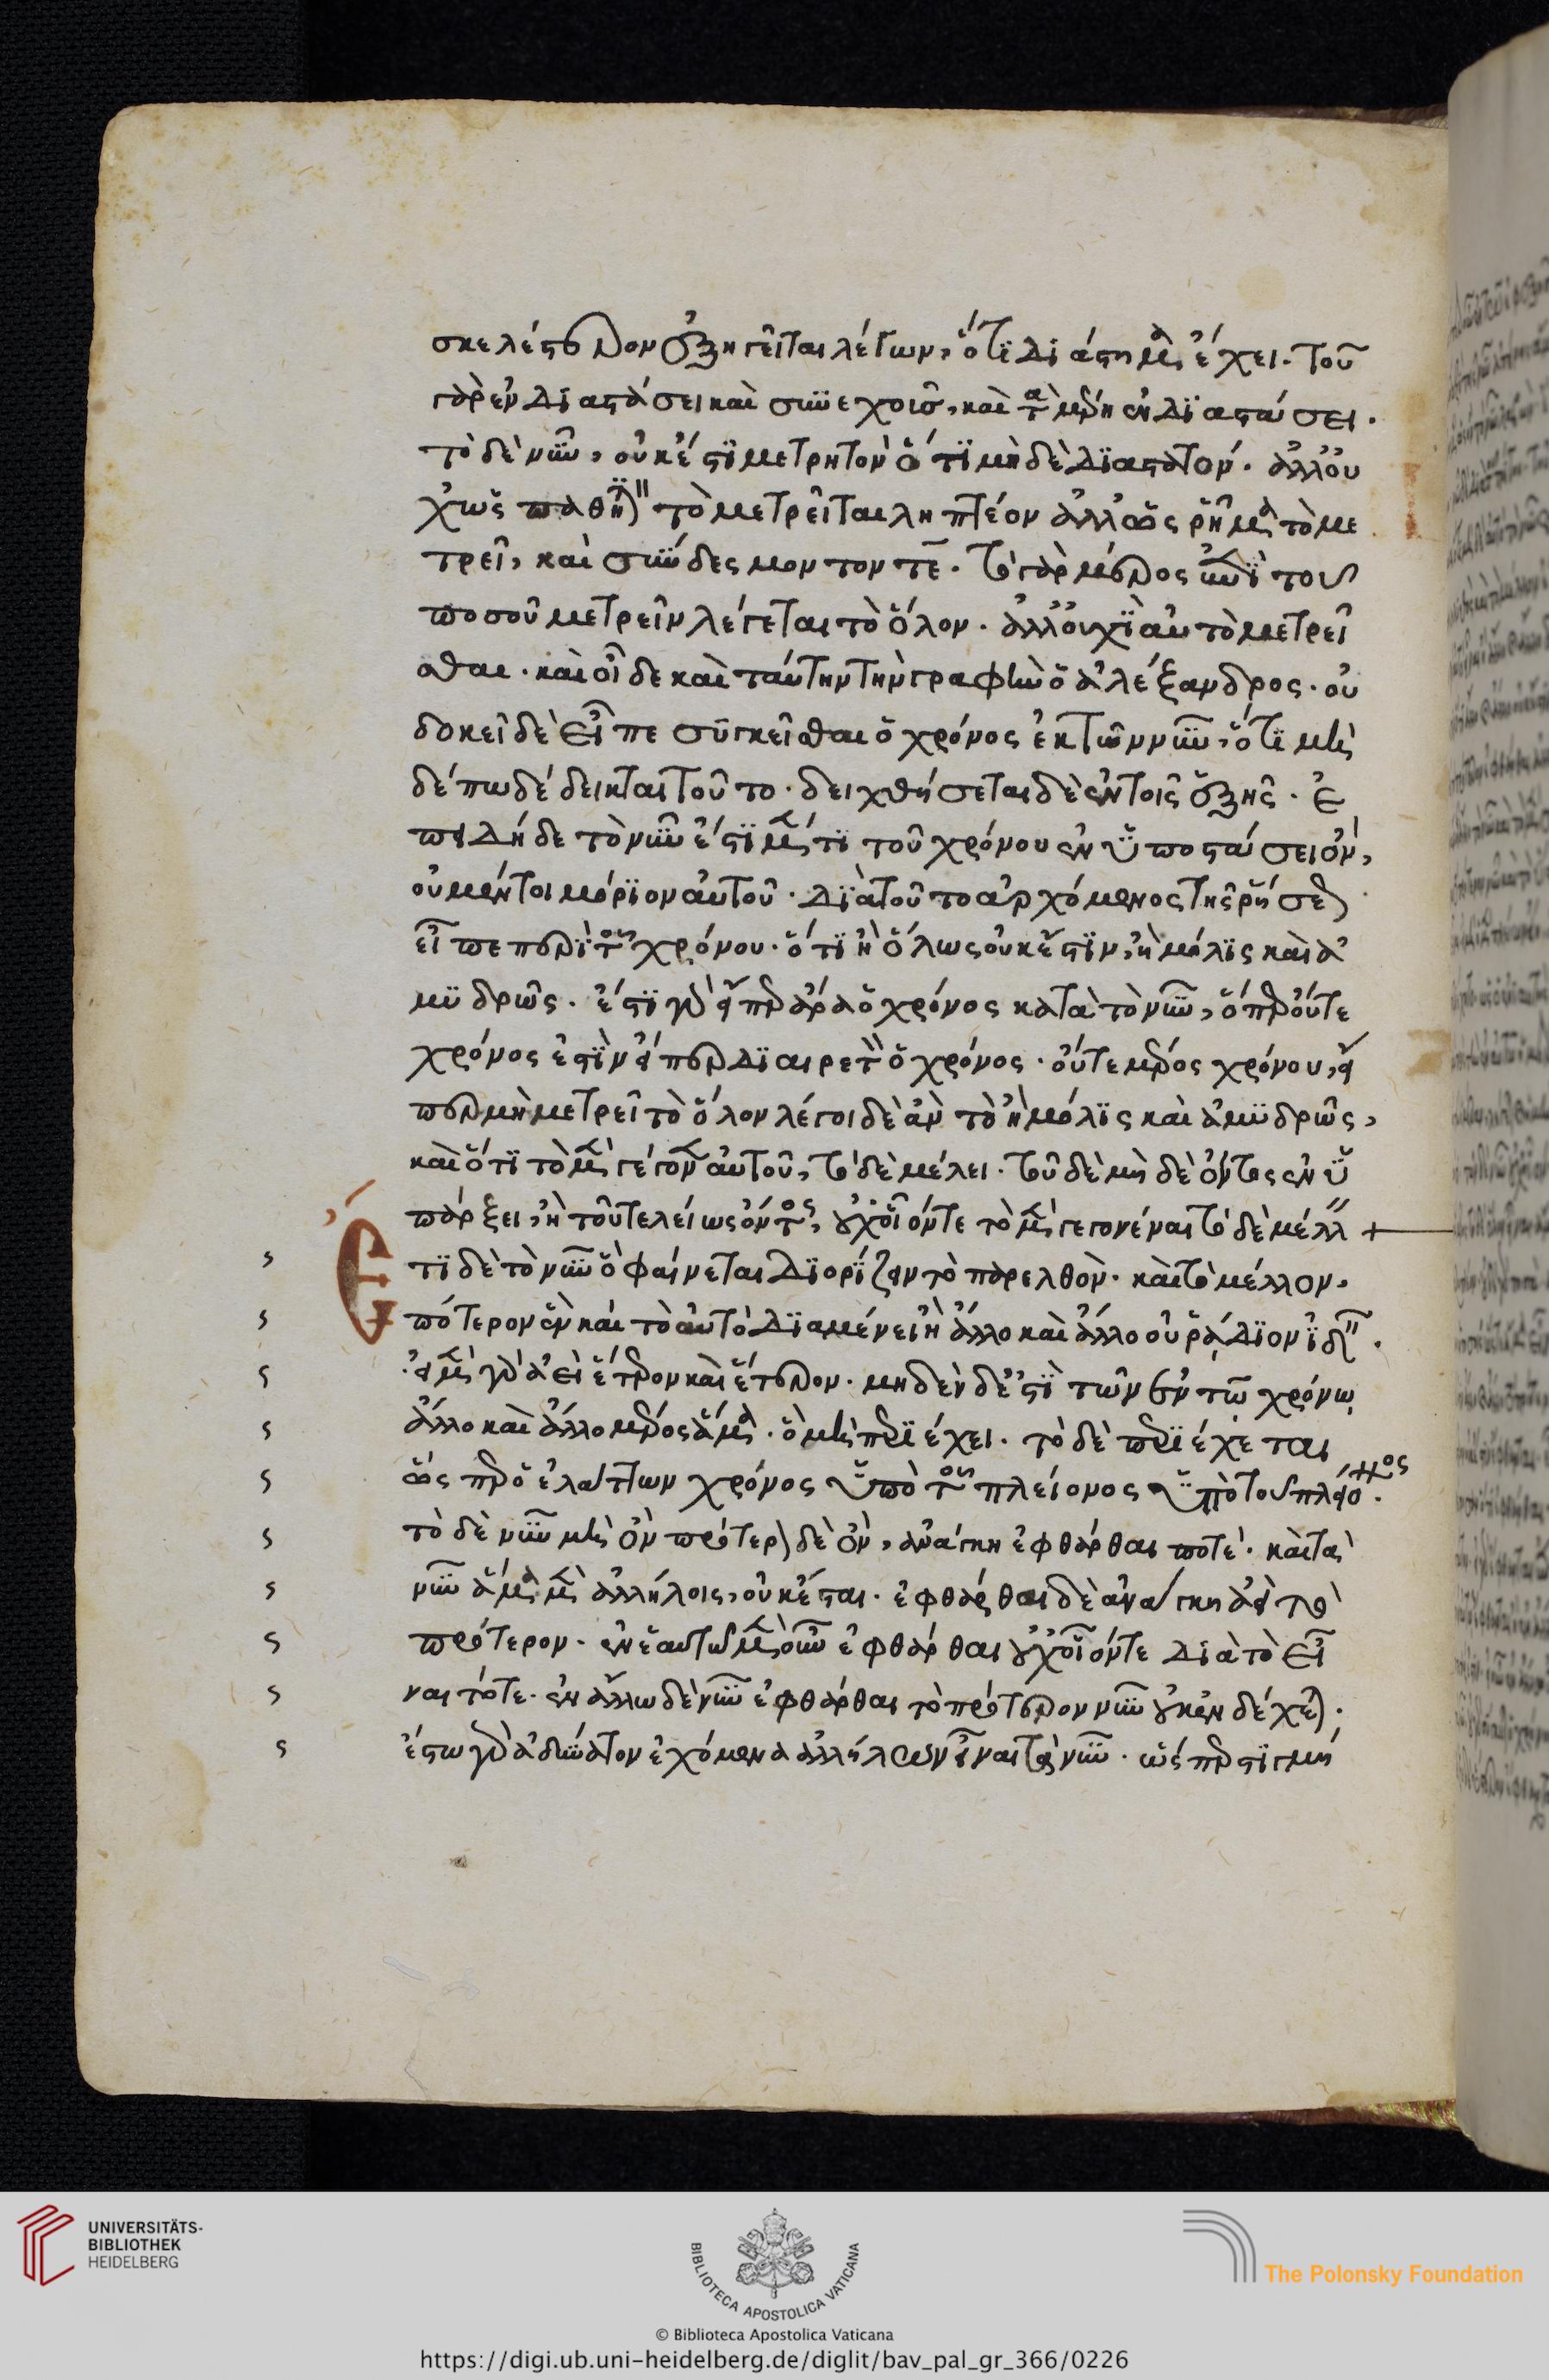 σκελέστερον ἐξηγεῖται λέγων, ὅτι διάστημα ἔχει. τοῦ
γὰρ ἐν διαστάσει καὶ συνεχοῦς, καὶ τὰ μέρη ἐν διαστάσει.
τὸ δὲ νῦν, οὐκ ἔστι μετρητὸν ὅτι μὴ δὲ διαστατόν. ἀλλ' οὐ
χ ὡς παθητικὸν τὸ μετρεῖται ληπτέον ἀλλ' ὡς ῥῆμα τὸ με
τρεῖ, καὶ σύνδεσμον τον τε. τὸ γὰρ μέρος ἀντὶ τοῦ
ποσοῦ μετρεῖν λέγεται τὸ ὅλον. ἀλλ' οὐχὶ αὐτὸ μετρεῖ
σθαι. καὶ οἶδε καὶ ταύτην τὴν γραφὴν ὁ ἀλέξανδρος. οὐ
δοκεῖ δὲ εἶπε συγκεῖσθαι ὁ χρόνος ἐκ τῶν νῦν, ὅτι μη
δέπω δέδεικται τοῦτο. δειχθήσεται δὲ ἐν τοῖς ἑξῆς. ἐ
πειδὴ δε τὸ νῦν ἐστὶ μέν τι τοῦ χρόνου ἐν ὑποστάσει ὄν,
οὐ μέντοι μόριον αὐτοῦ. διὰ τοῦτο ἀρχόμενος τῆς ῥήσεως
εἶπε περὶ τοῦ χρόνου. ὅτι ἢ ὅλως οὐκ ἔστιν, ἢ μόλις καὶ ἀ
μυδρῶς. ἔστι γὰρ εἴπερ ἄρα ὁ χρόνος κατὰ τὸ νῦν, ὅπερ οὔτε
χρόνος ἐστὶν εἴπερ διαιρετὸν ὁ χρόνος. οὔτε μέρος χρόνου, εἴ
περ μὴ μετρεῖ τὸ ὅλον λέγοι δὲ ἂν τὸ ἢ μόλις καὶ ἀμυδρῶς,
καὶ ὅτι τὸ μὲν γέγονεν αὐτοῦ, τὸ δὲ μέλει. τοῦ δὲ μὴ δὲ ὄντος ἐν ὑ
πάρξει, ἢ τοῦ τελείως ὄντος, οὐχ οἷόν τε τὸ μὲν γεγονέναι τὸ δὲ μέλλειν
Ἔτι δὲ τὸ νῦν ὃ φαίνεται διορίζειν τὸ παρελθὸν. καὶ τὸ μέλλον.
πότερον ἓν καὶ τὸ αὐτὸ διαμένει ἢ ἄλλο καὶ ἄλλο οὐ ῥᾴδιον ἰδεῖν.
εἰ μὲν γὰρ ἀεὶ ἕτερον καὶ ἕτερον. μηδὲν δ' ἐστὶ τῶν ἐν τῷ χρόνῳ
ἄλλο καὶ ἄλλο μέρος ἅμα. ὃ μὴ περιέχει. τὸ δὲ περιέχεται
ὥσπερ ὁ ἐλάττων χρόνος ὑπὸ τοῦ πλείονος
τὸ δὲ νῦν μὴ ὂν πρότερον δὲ ὄν, ἀνάγκη ἐφθάρθαι ποτέ. καὶ τὰ
νῦν ἅμα μὲν ἀλλήλοις, οὐκ ἔσται. ἐφθάρθαι δὲ ἀνάγκη ἀεὶ τὸ
πρότερον. ἐν ἑαυτῷ μὲν οὖν ἐφθάρθαι οὐχ οἷόν τε διὰ τὸ εἶ
ναι τότε. ἐν ἄλλω δὲ νῦν ἐφθάρθαι τὸ πρότερον νῦν οὐκ ἐνδέχεται.
ἔστω γὰρ ἀδύνατον ἐχόμενα ἀλλήλων εἶναι τὰ νῦν. ὥσπερ στιγμὴ
UNIVERSITÄTS-
BIBLIOTHEK
HEIDELBERG
BIBLIOTECA APOSTOLICA VATICANA
The Polonsky Foundation
© Biblioteca Apostolica Vaticana
https://digi.ub.uni-heidelberg.de/diglit/bav_pal_gr_366/0226